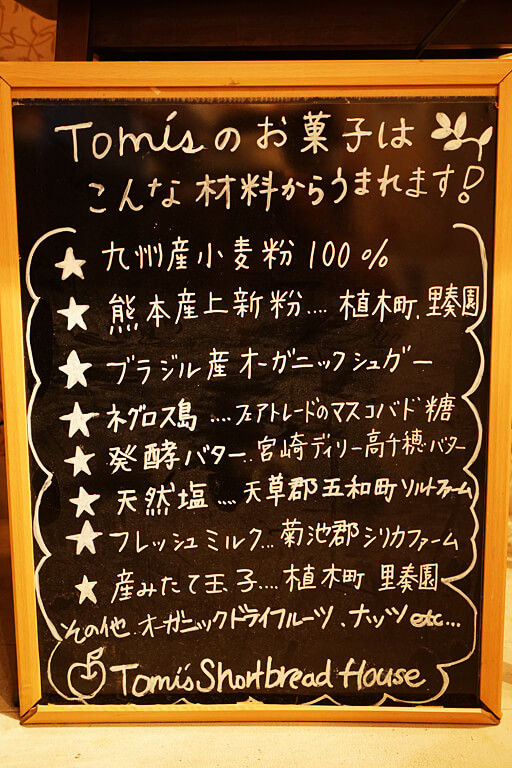 Tomi'sのお菓子は
こんな材料からうまれます!
★ 九州産小麦粉100%
★ 熊本産上新粉.... 植木町.里奏園
★ ブラジル産オーガニックシュガー
★ ネグロス島 ....フェアトレードのマスコバド糖
★ 発酵バター..宮崎デイリー高千穂バター
★ 天然塩....天草郡五和町ソルトファーム
★ フレッシュミルク...菊池郡シリカファーム
★ 産みたて玉子....植木町 里奏園
その他.オーガニックドライフルーツ、ナッツetc...
Tomi's Shortbread House